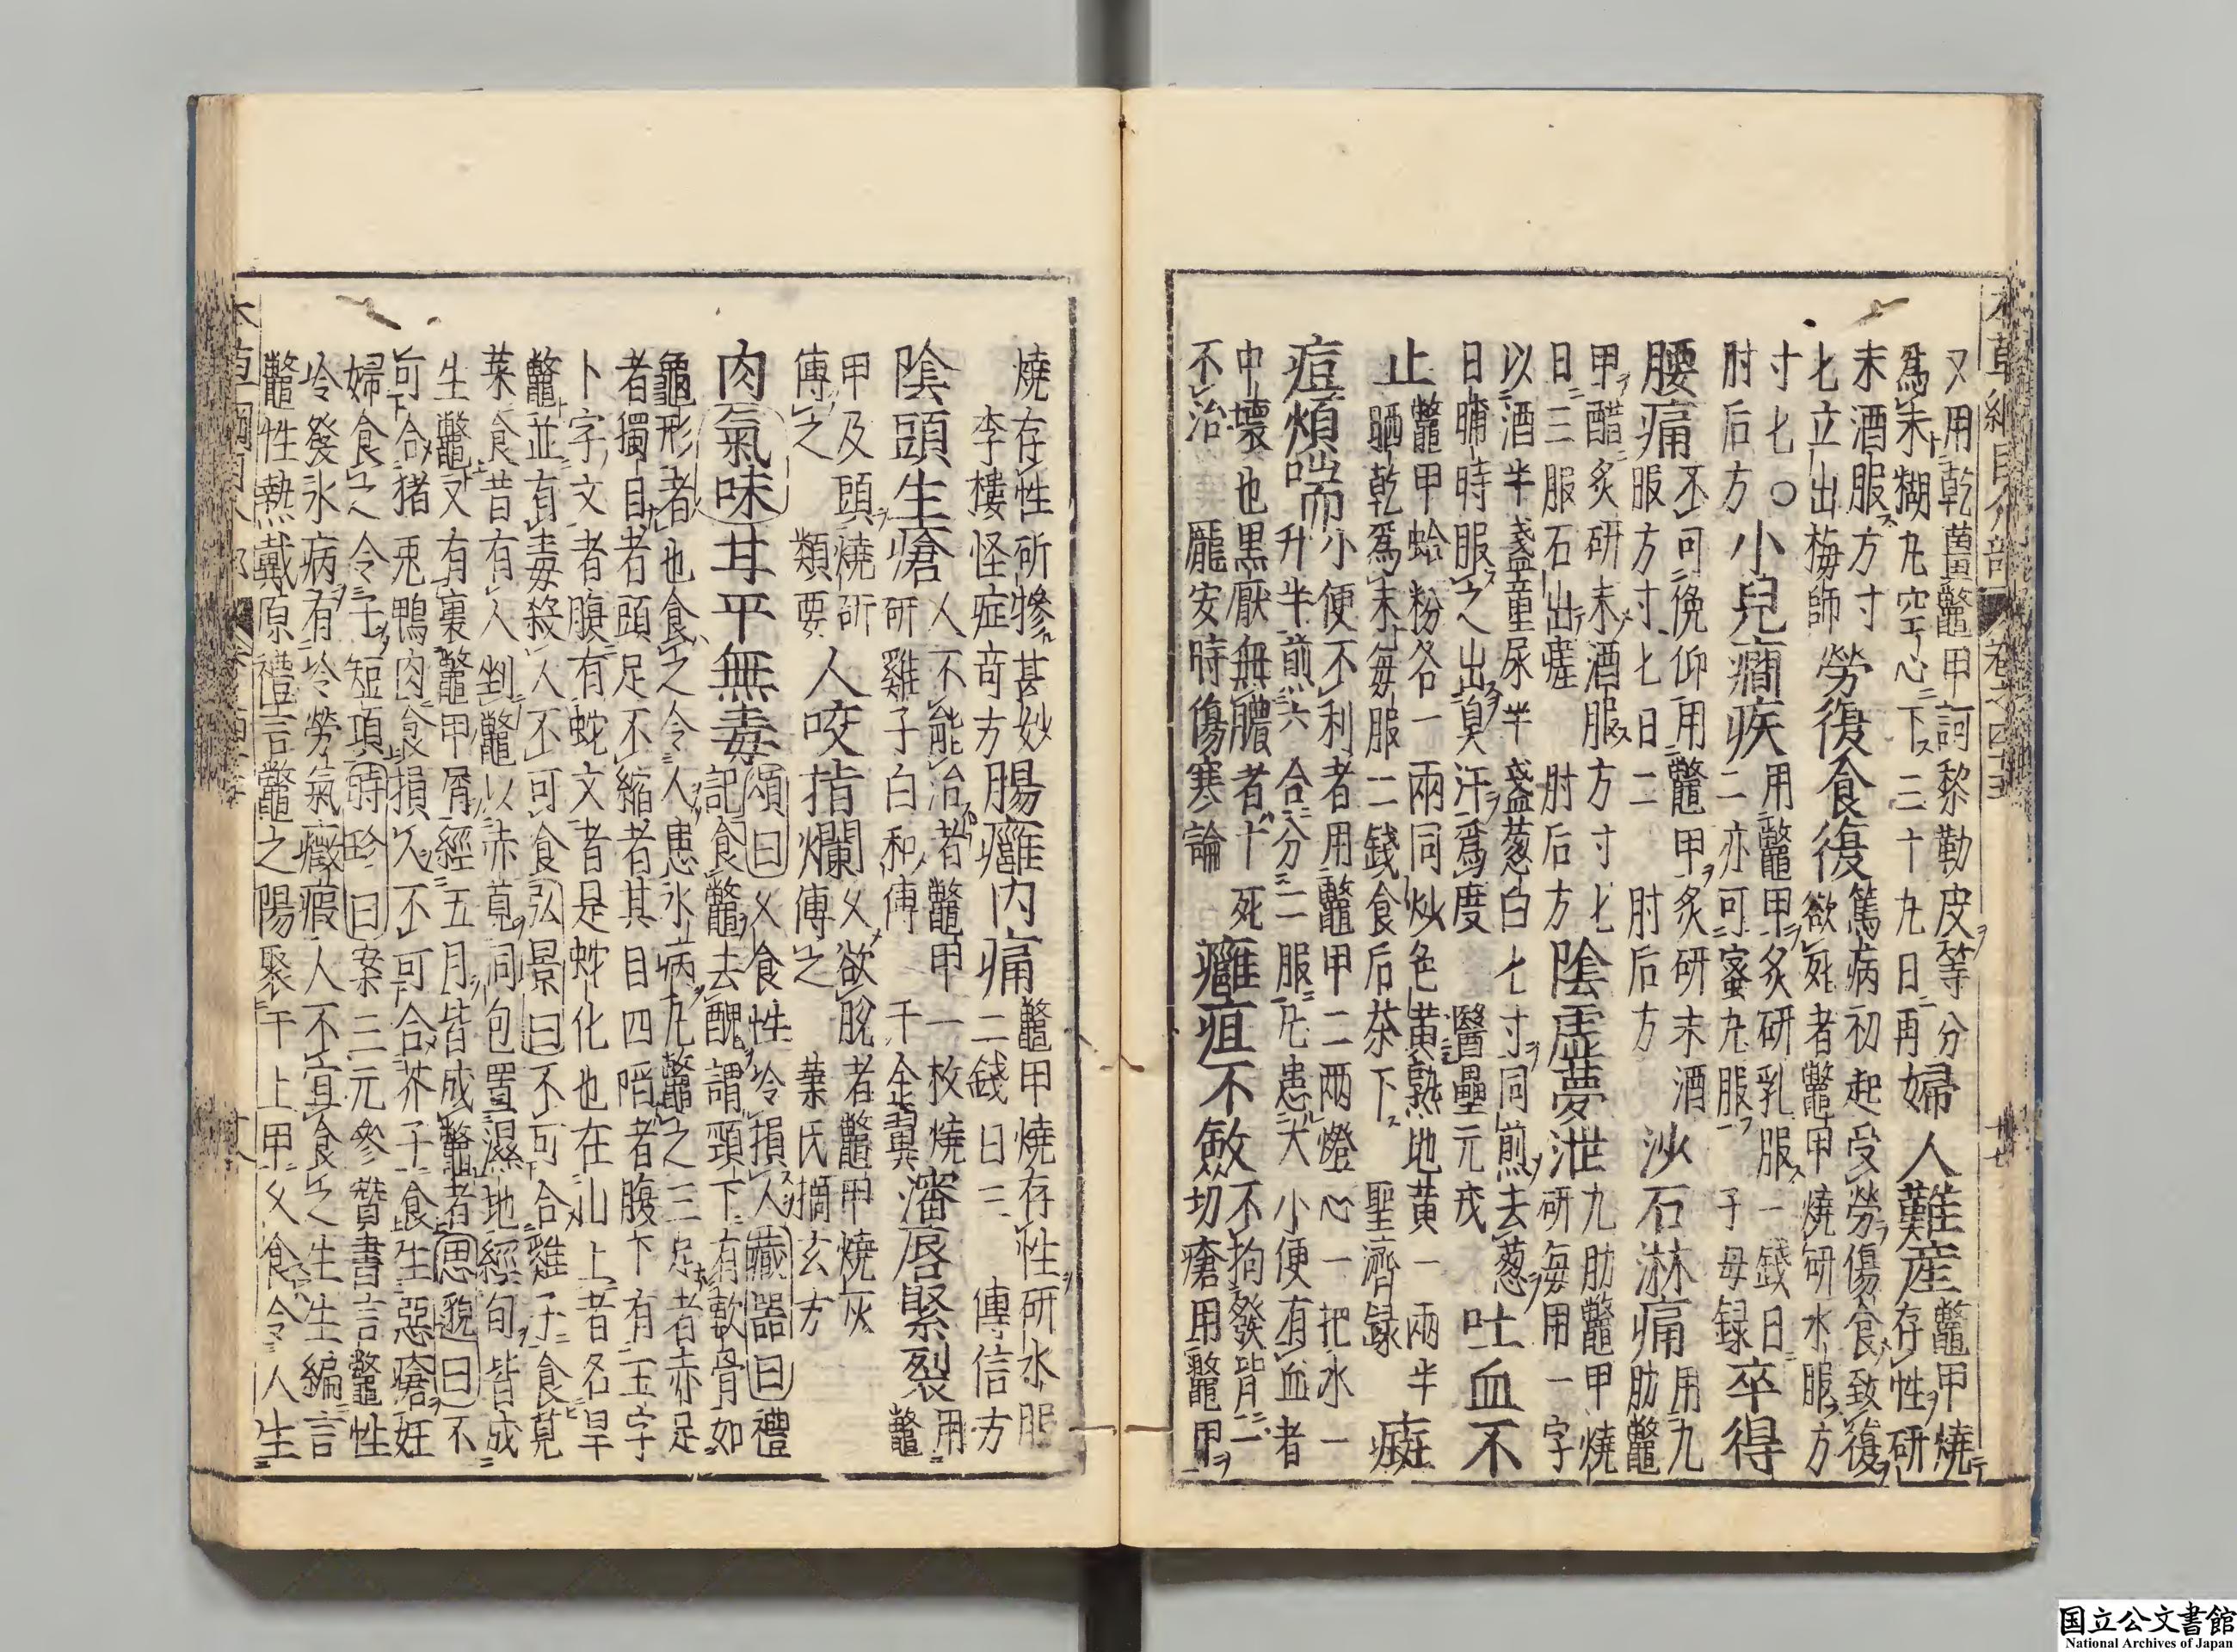 本草綱目介部 卷之四十五 廿七
又用乾薑鼈甲訶黎勒皮等分
爲末糊丸空心下三十丸日再 婦人難産 鼈甲燒存性研
末酒服方寸
匕立出梅師 勞復食復 篤病初起受勞傷食致復
欲死者鼈甲燒研水服方
寸匕〇
肘后方 小兒癇疾 用鼈甲炙研乳服一錢日
二亦可蜜丸服 子母録 卒得
腰痛 不可俛仰用鼈甲炙研末酒
服方寸匕日二 肘后方 沙石淋痛 用九
肋鼈
甲醋炙研末酒服方寸匕
日三服石出瘥 肘后方 陰虛夢泄 九肋鼈甲燒
研每用一字
以酒半盞童尿半盞葱白七寸同煎去葱
日晡時服之出臭汗爲度 醫壘元戎 吐血不
止 鼈甲蛤粉各一兩同炒色黄熟地黄一兩半
晒乾爲末每服二錢食后茶下 聖濟録 㿀
痘煩喘 小便不利者用鼈甲二兩燈心一把水一
升半煎六合分二服凡患大小便有血者
中壞也黒厭無膿者十死
不治 龐安時傷寒論 癰疽不斂 不拘發背一
切瘡用鼈甲
燒存性研摻甚妙
李樓怪症奇方 腸癰内痛 鼈甲燒存性研水服
二錢日三 傳信方
陰頭生瘡 人不能治者鼈甲一枚燒
研雞子白和傅 千金翼 瀋唇緊裂 用
鼈
甲及頭燒研
傅之 類要 人咬指爛 久欲脱者鼈甲燒灰
傅之 葉氏摘玄方
肉氣味甘平無毒 頌曰久食性冷損人藏器曰禮
記食鼈去醜謂頸下有軟骨如
龜形者也食之令人患水病凡鼈之三足者赤足
者獨目者頭足不縮者其目四陷者腹下有王字
卜字文者腹有蛇文者是蛇化也在山上者名旱
鼈並有毒殺人不可食弘景曰不可合雞子食莧
菜食昔有人剉鼈以赤莧同包置濕地經旬皆成
生鼈又有裹鼈甲屑經五月皆成鼈者思邈曰不
可合猪兎鴨肉食損人不可合芥子食生惡瘡妊
婦食之令子短項時珍曰案三元參贊書言鼈性
冷發水病有冷勞氣癥瘕人不宜食之生生編言
鼈性熱戴原禮言鼈之陽聚于上甲久食令人生
国立公文書館
National Archives of Japan